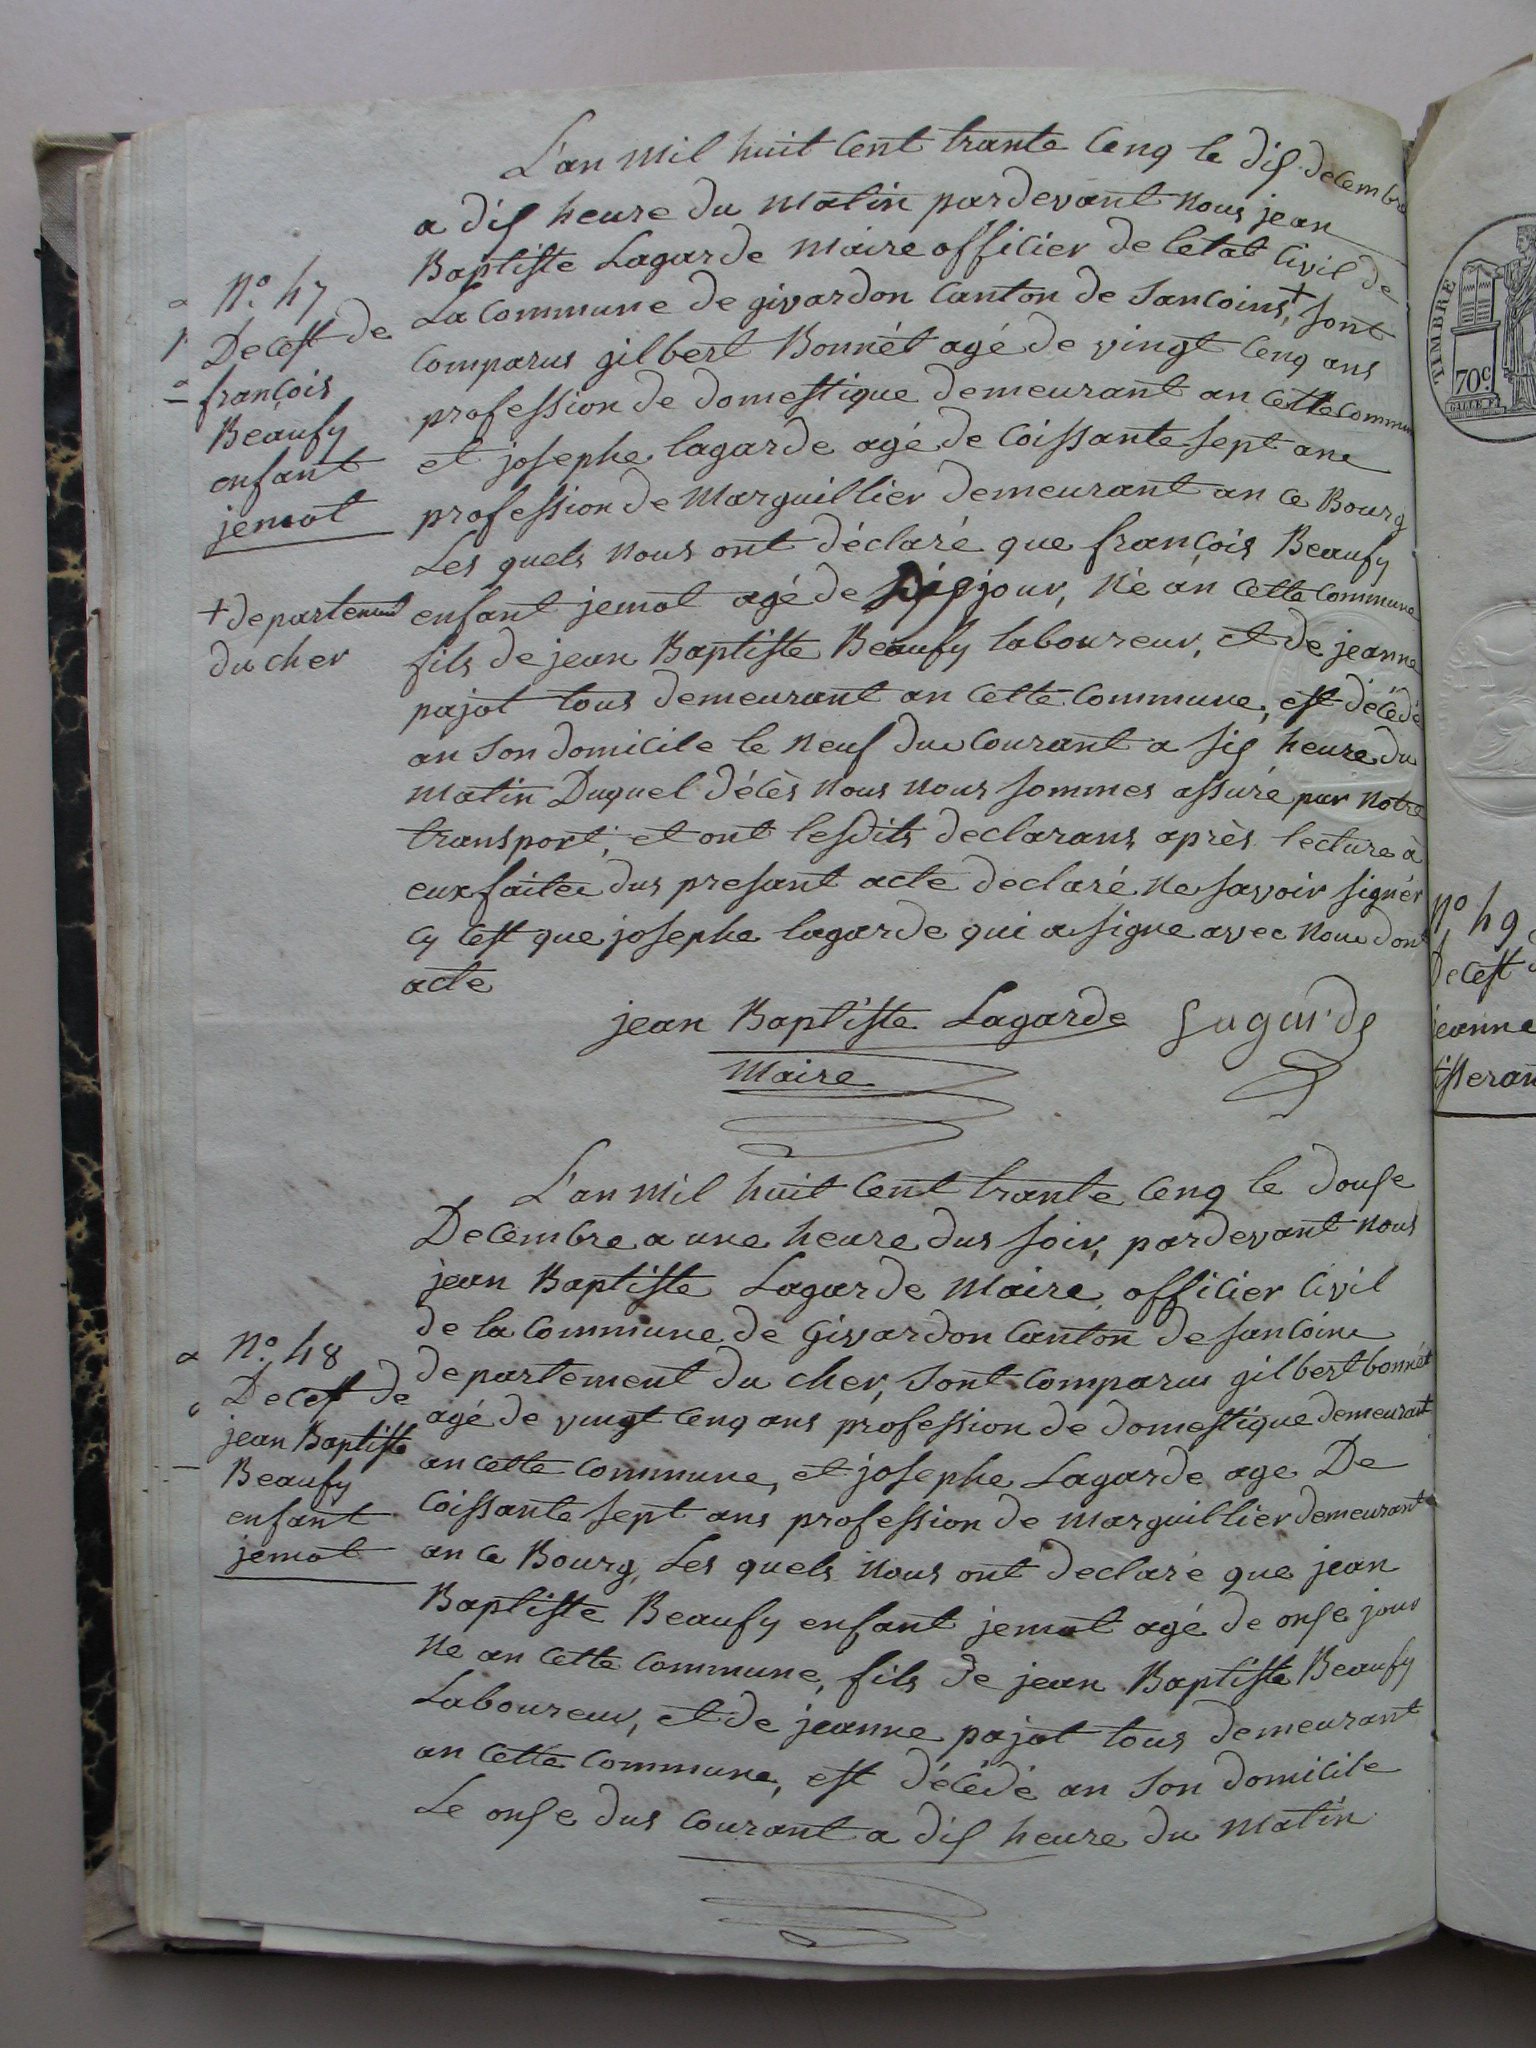 L'an mil huit cent trante cenq le dix decembre
a dix heure du matin pardevant nous jean
Baptiste Lagarde maire officier de letat civil de
La commune de givardon canton de Sancoins,+ sont
comparus gilbert Bonnét agé de vingt cenq ans
profession de domestique demeurant an cette commune
et josephe lagarde agé de coissante sept ans
profession de Marguillier demeurant an ce Bourg
Les quels nous ont déclaré que françois Beaufy
enfant jemot agé de jour, né an cette commune
fils de jean Baptiste Beaufy laboureur, et de jeanne
pajot tous demeurant an cette commune, est décédé
an son domicile le neuf du courant a six heure du
matin Duquel décès nous nous sommes assuré par notre
transport, et ont lesdits declarans après lecture à
eux faitee dus presant acte declaré ne savoir signér
cy cest que josephe lagarde qui a signe avec nous dont
acte
jean Baptiste Lagarde Lagarde
Maire
N.o 47
Decest de
françois
Beaufy
enfant
jemot
+ departement
du cher
L'an mil huit cent trante cenq le douse
Decembre a une heure dus soir, pardevant nous
jean Baptiste Lagarde Maire, officier civil
de la commune de Givardon canton de Sancoins
departement du cher, sont comparus gilbert bonnét
agé de vingt cenq ans profession de domestique demeurant
an cette commune, et josephe Lagarde age De
coissante sept ans profession de marguillier demeurant
an ce Bourg, Les quels nous ont declaré que jean
Baptiste Beaufy enfant jemot agé de onse jour
né an cette commune, fils de jean Baptiste Beaufy
Laboureur, et de jeanne pajot tous demeurant
an cette commune, est décédé an son domicile
Le onse dus courant a dix heure du matin
N.o 48
Decest de
jean Baptiste
Beaufy
enfant
jemot
TIMBRE
70c
N.o 49
Decest d
jeanne
tisseran